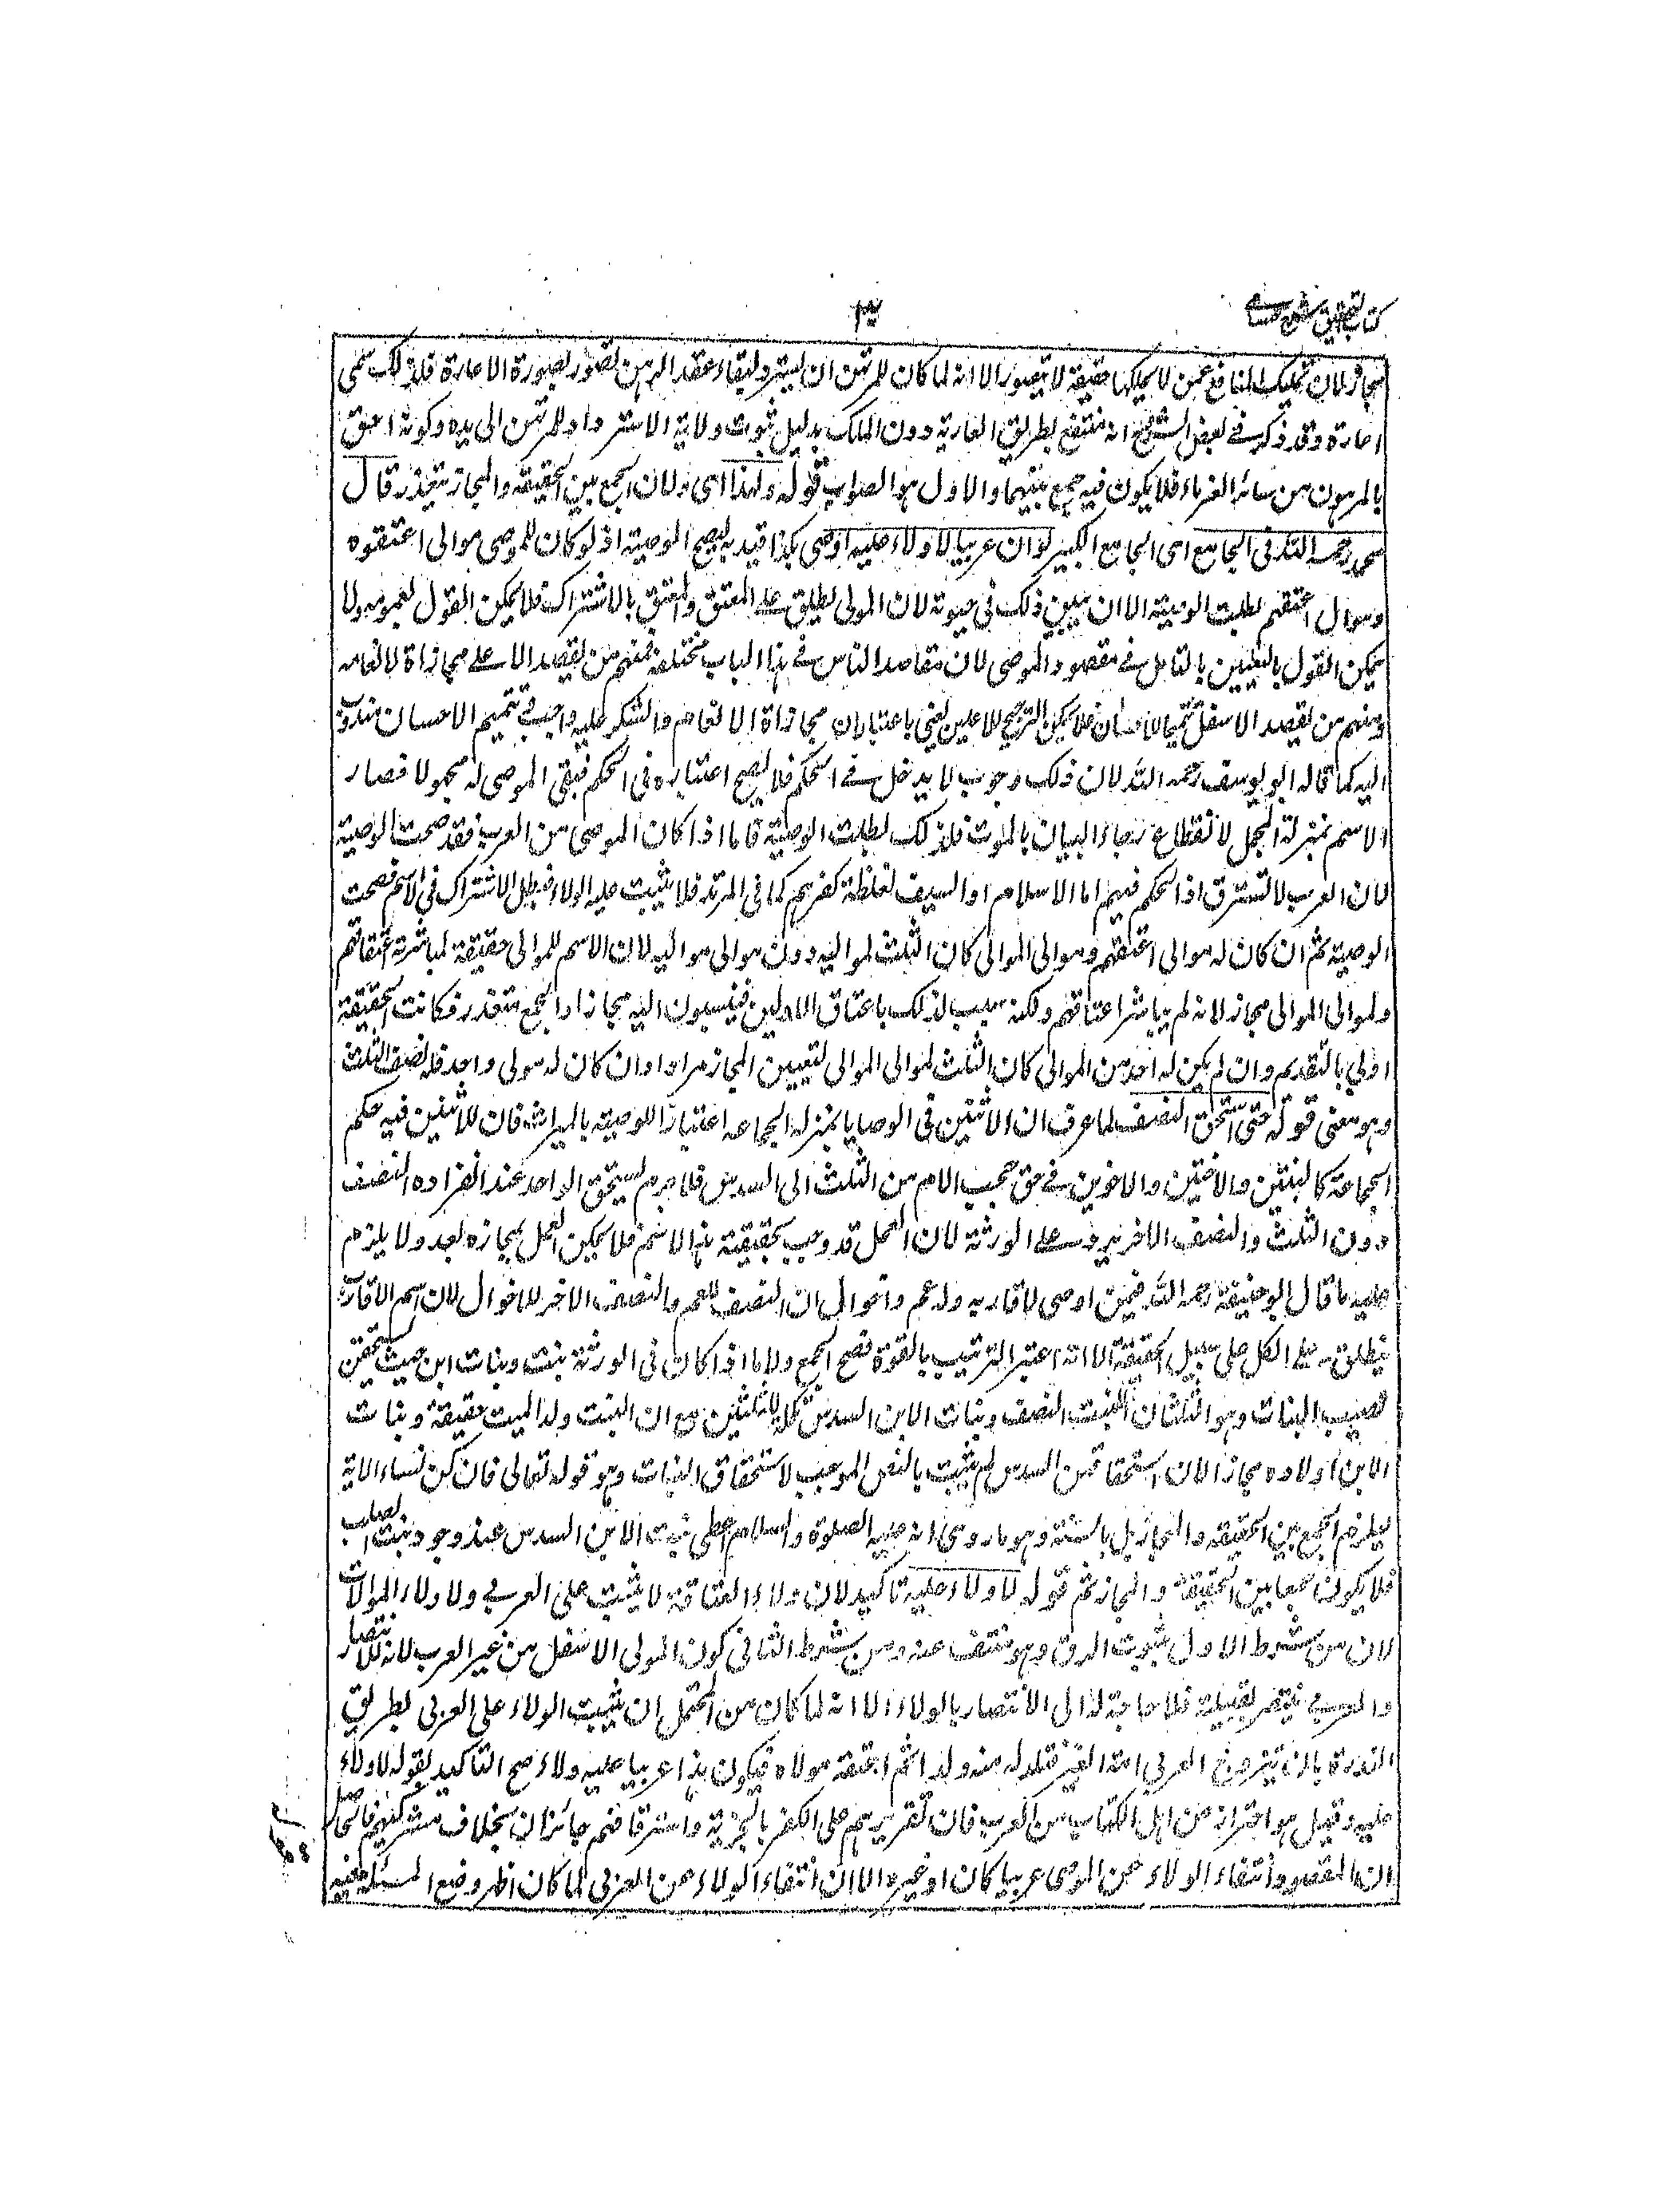 كتاب التحقيق شرح حسامى
مجاز لان تمليك المنافع عمن لا يملكها حقيقة لا يتصور الا انه لما كان للمرتهن ان يسترد ولبقاء عقد الرهن تصور بصورة الاعارة فلذلك سمى
اعارة وقد ذكر فى بعض الشروح انه منتفع بطريق العارية دون الملك بدليل ثبوت ولاية الاسترداد للمرتهن الى يده وكونه احق
بالمرهون من سائر الغرماء فلا يكون فيه جمع بينهما والاول هو الصواب قوله ولهذا اى ولان الجمع بين الحقيقة والمجاز متعذر قال
محمد رحمه الله فى الجامع اى الجامع الكبير لو ان عربيا لا ولاء عليه اوصى هكذا قيد به ليصح الوصية اذ لو كان للموصى موالى اعتقوه
وموال اعتقهم بطلت الوصية الا ان يبين ذلك فى حيوته لان المولى يطلق على المعتق والمعتق بالاشتراك فلا يمكن القول لعمومه ولا
يمكن القول بالتعيين بالتامل فى مقصود الموصى لان مقاصد الناس فى هذا الباب مختلفة فمنهم من يقصد الاعلى مجازاة لانعامه
ومنهم من يقصد الاسفل تتميما للاحسان فلا يمكن الترجيح للاعلين يعنى باعتبار ان مجازاة الانعام والشكر عليه واجب فى تتميم الاحسان مندوب
اليه كما قاله ابو يوسف رحمه الله لان ذلك وجوب لا يدخل فى الحكم فلا يصح اعتباره فى الحكم فبقى الموصى له مجهولا فصار
الاسم بمنزلة المجمل لانقطاع رجاء البيان بالموت فلذلك بطلت الوصية فاما اذا كان الموصى من العرب فقد صحت الوصية
لان العرب لا تسترق اذ الحكم فيهم اما الاسلام او السيف لغلظة كفرهم كما فى المرتد فلا يثبت عليه الولاء فبطل الاشتراك فى الاسم فصحت
الوصية ثم ان كان له موالى اعتقهم وموالى الموالى كان الثلث لمواليه دون موالى مواليه لان الاسم للموالى حقيقة لمباشرته اعتاقهم
ولموالى الموالى مجاز لانه لم يباشر اعتاقهم ولكنه سبب لذلك باعتاق الاولين فينسبون اليه مجازا والجمع متعذر فكانت الحقيقة
اولى بالتقديم وان لم يكن له احد من الموالى كان الثلث لموالى الموالى لتعيين المجاز مرادا وان كان له مولى واحد فله نصف الثلث
وهو معنى قوله حتى استحق النصف لما عرف ان الاثنين فى الوصايا بمنزلة الجماعة اعتبارا للوصية بالميراث فان للاثنين فيه حكم
الجماعة كالبنتين والاختين والاخوين فى حق حجب الام من الثلث الى السدس فلا جرم يستحق الواحد عند انفراده النصف
دون الثلث والنصف الاخر يرد على الورثة لان العمل قد وجب بحقيقة هذا الاسم فلا يمكن العمل بمجازه بعد ولا يلزم
عليه ما قال ابو حنيفة رحمه الله فيمن اوصى لاقاربه وله عم واخوال ان النصف للعم والنصف الاخر للاخوال لان اسم الاقارب
ينطلق على الكل على سبيل الحقيقة الا انه اعتبر الترتيب بالقوة فصح الجمع ولا ما اذا كان فى الورثة بنت وبنات ابن حيث يستحقن
نصيب البنات وهو الثلثان للبنت النصف وبنات الابن السدس تكملة للثلثين مع ان البنت ولد الميت حقيقة وبنات
الابن اولاده مجازا لان استحقاقهن السدس لم يثبت بالنص الموجب لاستحقاق البنات وهو قوله تعالى فان كن نساء الاية
ليلزم الجمع بين الحقيقة والمجاز بل بالسنة وهو ما روى انه عليه الصلوة والسلام اعطى بنت الابن السدس عند وجود بنت الصلب
فلا يكون جمعا بين الحقيقة والمجاز ثم قوله لا ولاء عليه تاكيد لان ولاء العتاقة لا يثبت على العربى ولا ولاء الموالات
لان من شرط الاول ثبوت الرق وهو منتف عنه ومن شرط الثانى كون المولى الاسفل من غير العرب لانه للانتصار
والعربى ينتصر بقبيلته فلا حاجة له الى الانتصار بالولاء الا انه لما كان من المحتمل ان يثبت الولاء على العربى بطريق
الندرة بان يتزوج العربى امة الغير فتلد له منه ولدا ثم اعتقه مولاه فيكون هذا عربيا عليه ولاء صح التاكيد بقوله لا ولاء
عليه وقيل هو احتراز عن اهل الكتاب من العرب فان تقريرهم على الكفر بالجزية واسترقاقهم جائزان بخلاف مشركيهم فالحاصل
ان المقصود انتفاء الولاء عن الموصى عربيا كان او غيره الا ان انتفاء الولاء عن العربى لما كان اظهر وضع المسئلة فيه